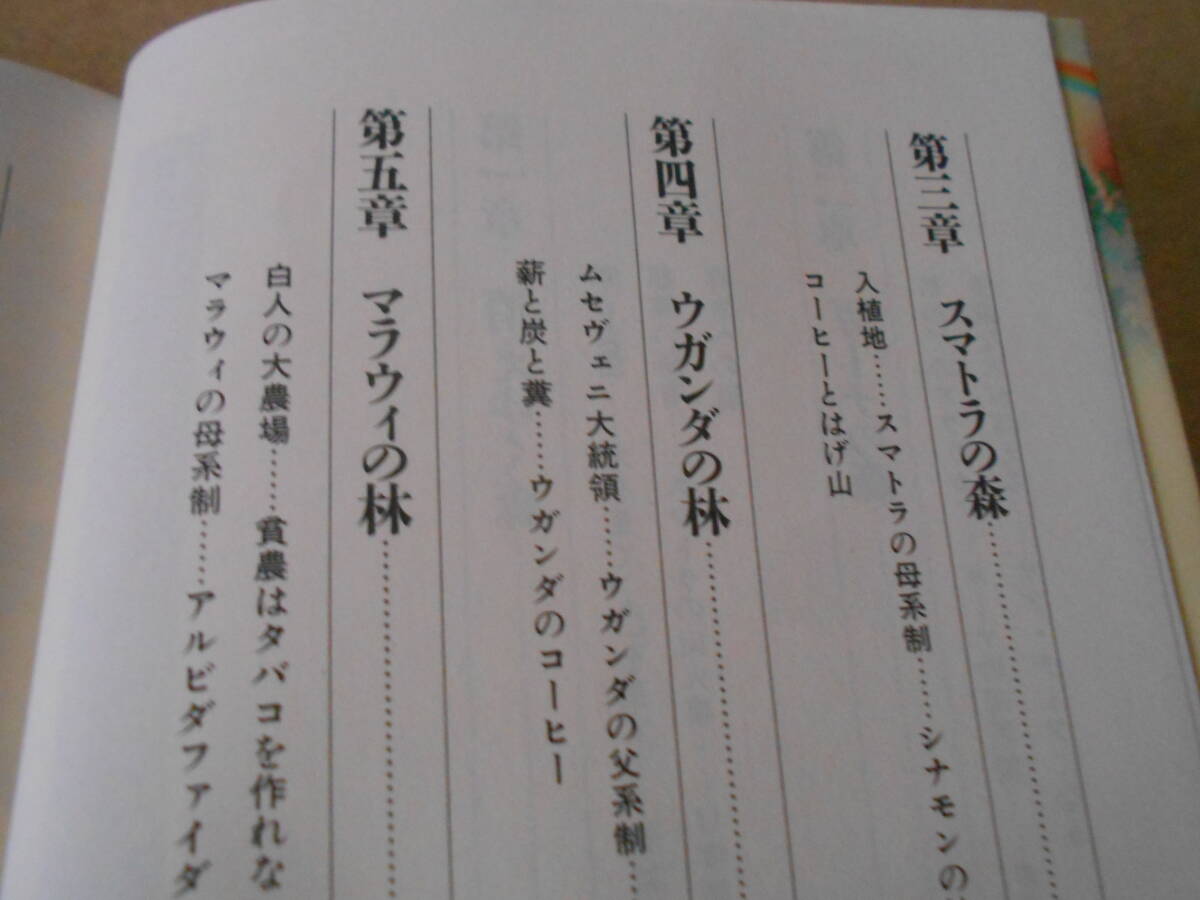 第三章 スマトラの森……………………
入植地……スマトラの母系制……シナモンの
コーヒーとはげ山
第四章 ウガンダの林……………………
ムセヴェニ大統領……ウガンダの父系制……
薪と炭と糞……ウガンダのコーヒー
第五章 マラウィの林……………………
白人の大農場……貧農はタバコを作れな
マラウィの母系制……アルビダファイダ